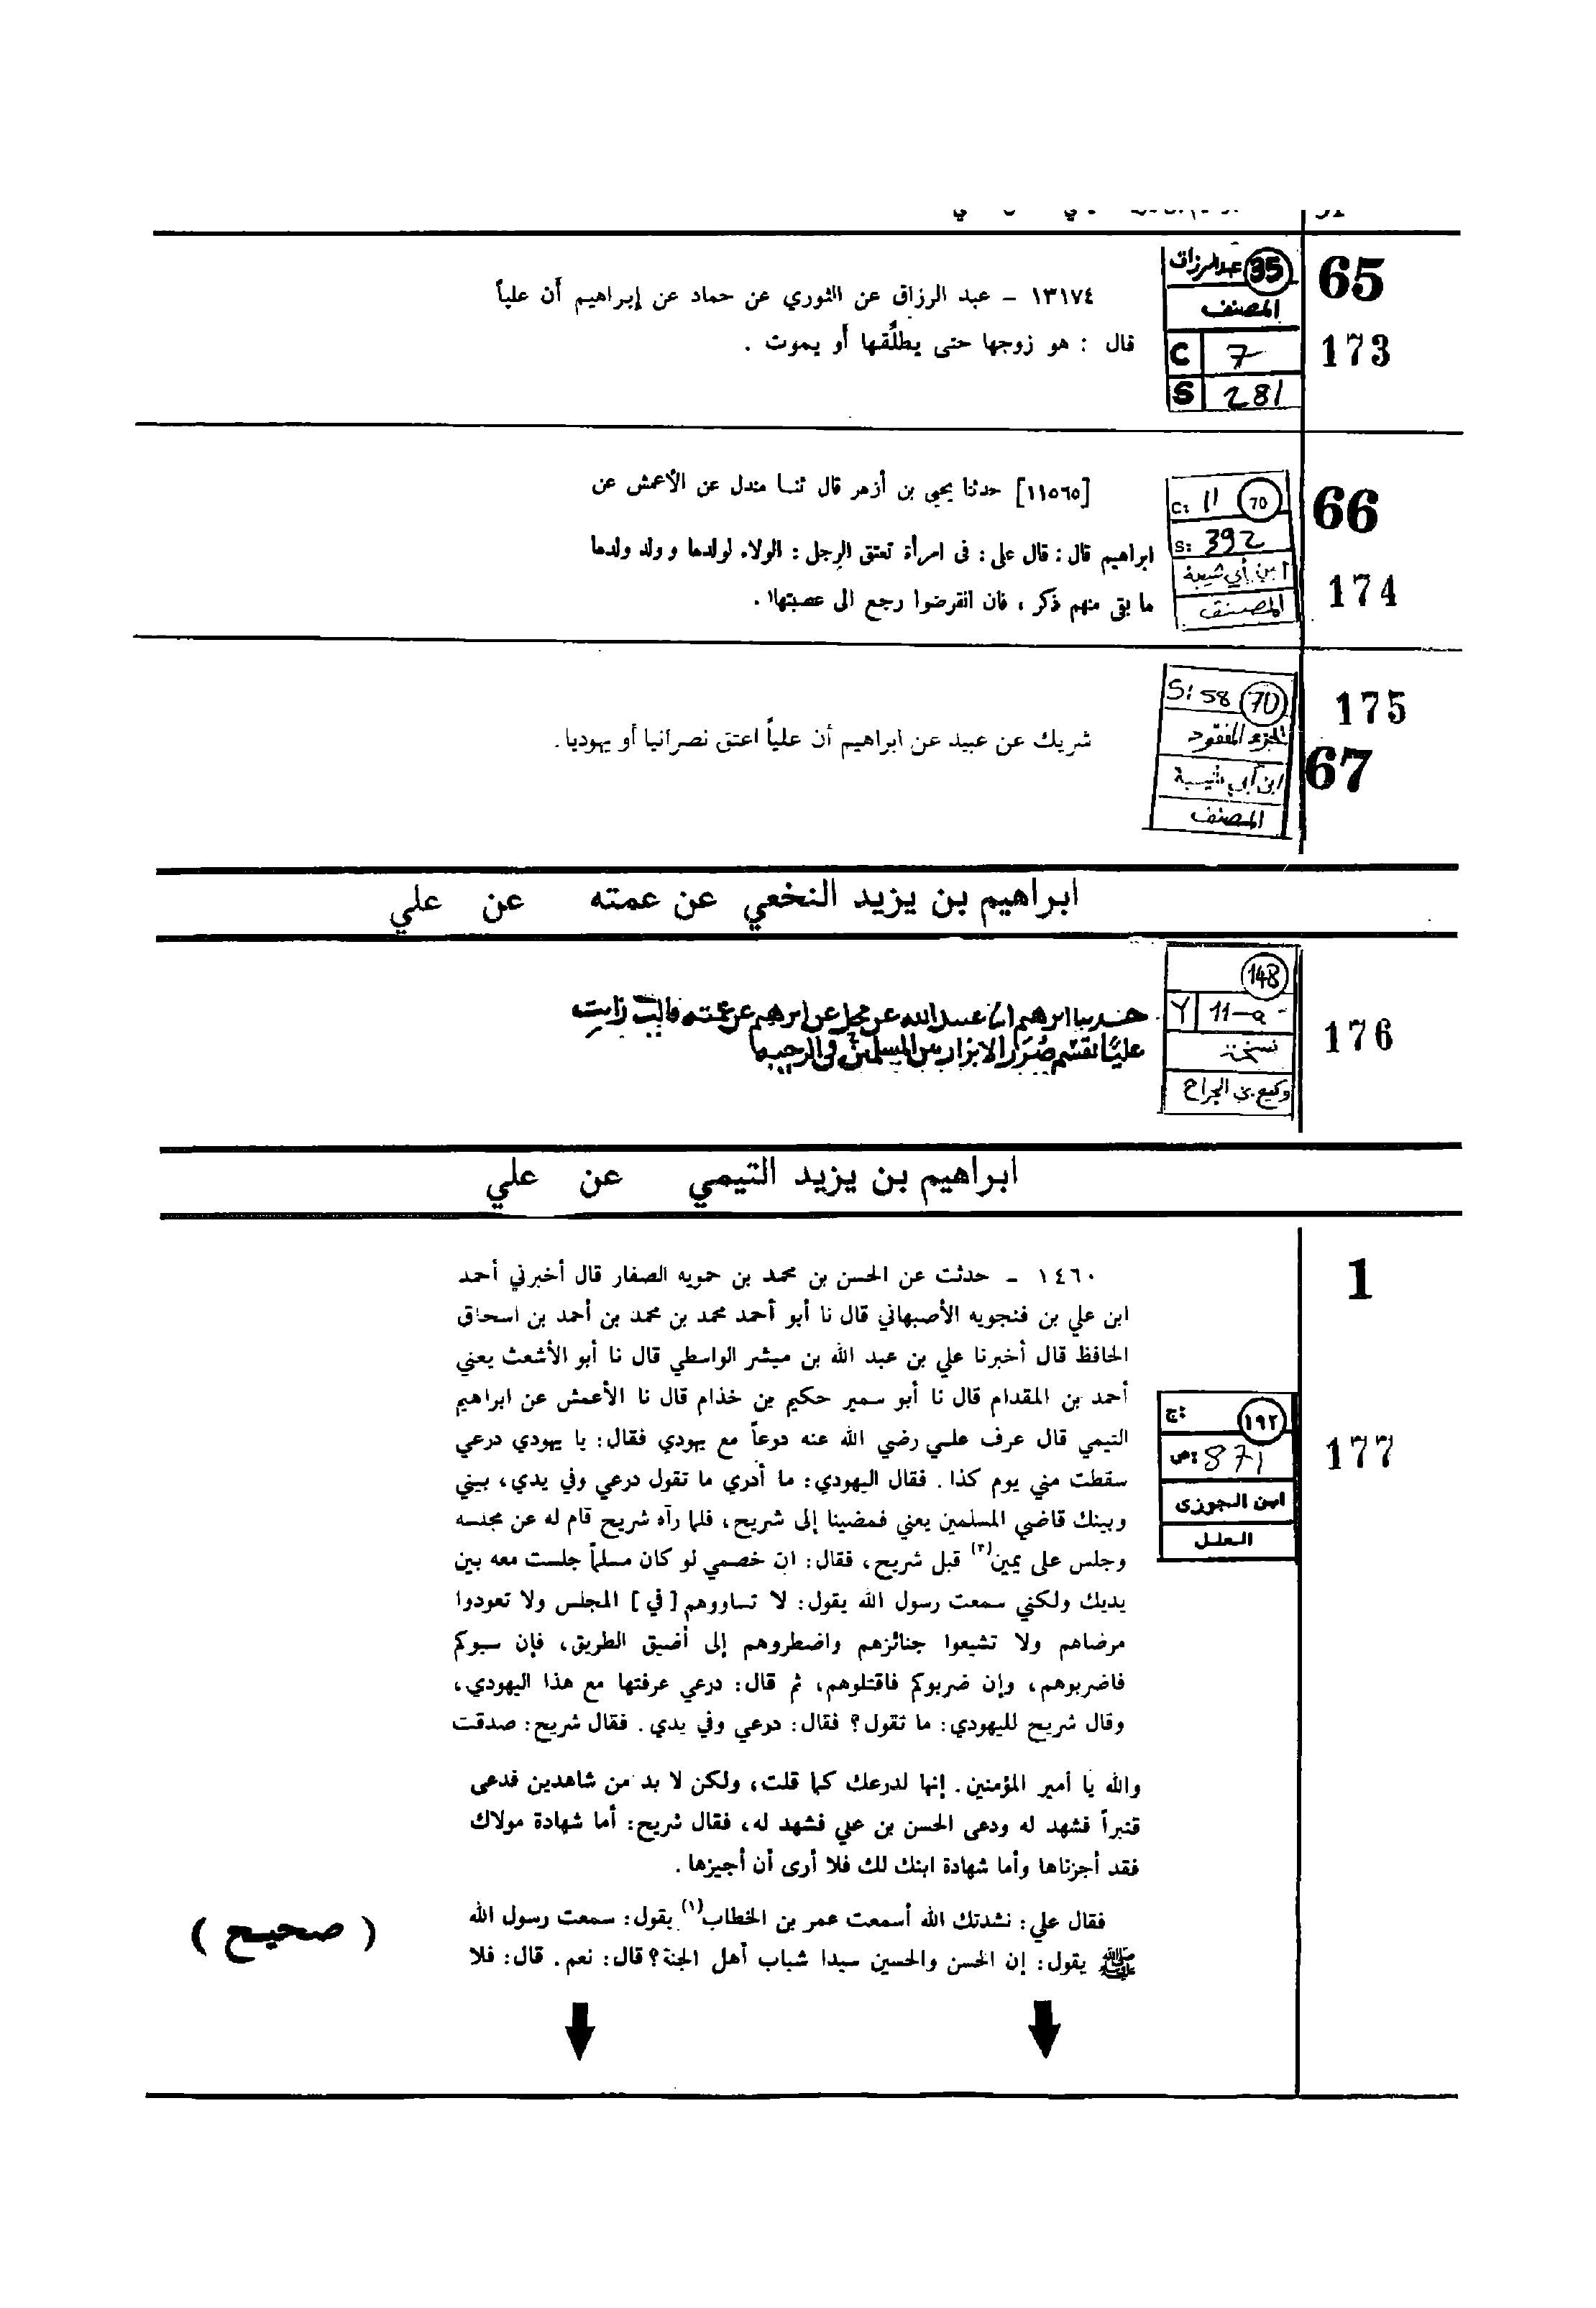 65
173
35 عبد الرزاق
المصنف
C 7
S 281
١٣١٧٤ - عبد الرزاق عن الثوري عن حماد عن إبراهيم أن علياً
قال : هو زوجها حتى يطلّقها أو يموت .
66
174
C: 11 70
S: 392
ابن أبي شيبة
المصنف
[١١٥٦٥] حدثنا يحيى بن أزهر قال ثنا مندل عن الأعمش عن
ابراهيم قال : قال على : فى امرأة تعتق الرجل : الولاء لولدها و ولد ولدها
ما بقى منهم ذكر ، فان انقرضوا رجع الى عصبتها١ .
175
67
S: 58 70
الجزء المفقود
ابن أبي شيبة
المصنف
شريك عن عبيد عن ابراهيم أن علياً اعتق نصرانيا أو يهوديا.
ابراهيم بن يزيد النخعي عن عمته عن علي
176
148
Y 11-a
نسخة
وكيع بن الجراح
ابرهيم عن عمته قالت رايت
عليا يقسم صرر الابزار بين المسلمين في الرحبة
ابراهيم بن يزيد التيمي عن علي
1
177
ج: ١٩٢
ص: 871
ابن الجوزى
العلل
١٤٦٠ - حدثت عن الحسن بن محمد بن حمويه الصفار قال أخبرني أحمد
ابن علي بن فنجويه الأصبهاني قال نا أبو أحمد محمد بن محمد بن أحمد بن اسحاق
الحافظ قال أخبرنا علي بن عبد الله بن ميشر الواسطي قال نا أبو الأشعث يعني
أحمد بن المقدام قال نا أبو سمير حكيم بن خذام قال نا الأعمش عن ابراهيم
التيمي قال عرف علي رضي الله عنه درعاً مع يهودي فقال: يا يهودي درعي
سقطت مني يوم كذا. فقال اليهودي: ما أدري ما تقول درعي وفي يدي، بيني
وبينك قاضي المسلمين يعني فمضينا إلى شريح، فلما رآه شريح قام له عن مجلسه
وجلس على يمين(٣) قبل شريح، فقال: ان خصمي لو كان مسلماً جلست معه بين
يديك ولكني سمعت رسول الله يقول: لا تساووهم [في] المجلس ولا تعودوا
مرضاهم ولا تشيعوا جنائزهم واضطروهم إلى أضيق الطريق، فإن سبوكم
فاضربوهم، وإن ضربوكم فاقتلوهم، ثم قال: درعي عرفتها مع هذا اليهودي،
وقال شريح لليهودي: ما تقول؟ فقال: درعي وفي يدي. فقال شريح: صدقت
والله يا أمير المؤمنين. إنها لدرعك كما قلت، ولكن لا بد من شاهدين فدعى
قنبراً فشهد له ودعى الحسن بن علي فشهد له، فقال شريح: أما شهادة مولاك
فقد أجزناها وأما شهادة ابنك لك فلا أرى أن أجيزها.
فقال علي: نشدتك الله أسمعت عمر بن الخطاب(١) يقول: سمعت رسول الله
ﷺ يقول: إن الحسن والحسين سيدا شباب أهل الجنة؟ قال: نعم. قال: فلا
( صحيح )